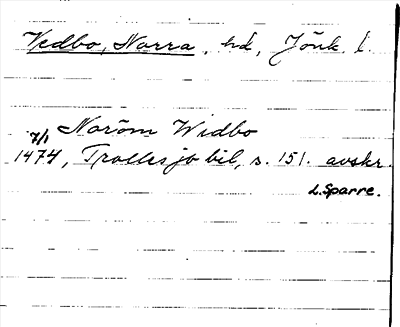 Vedbo, Norra, hd, Jönk. l.
Noröm Widbo
7/1
1474, Trolles jb bil, s. 151. avskr.
L. Sparre.